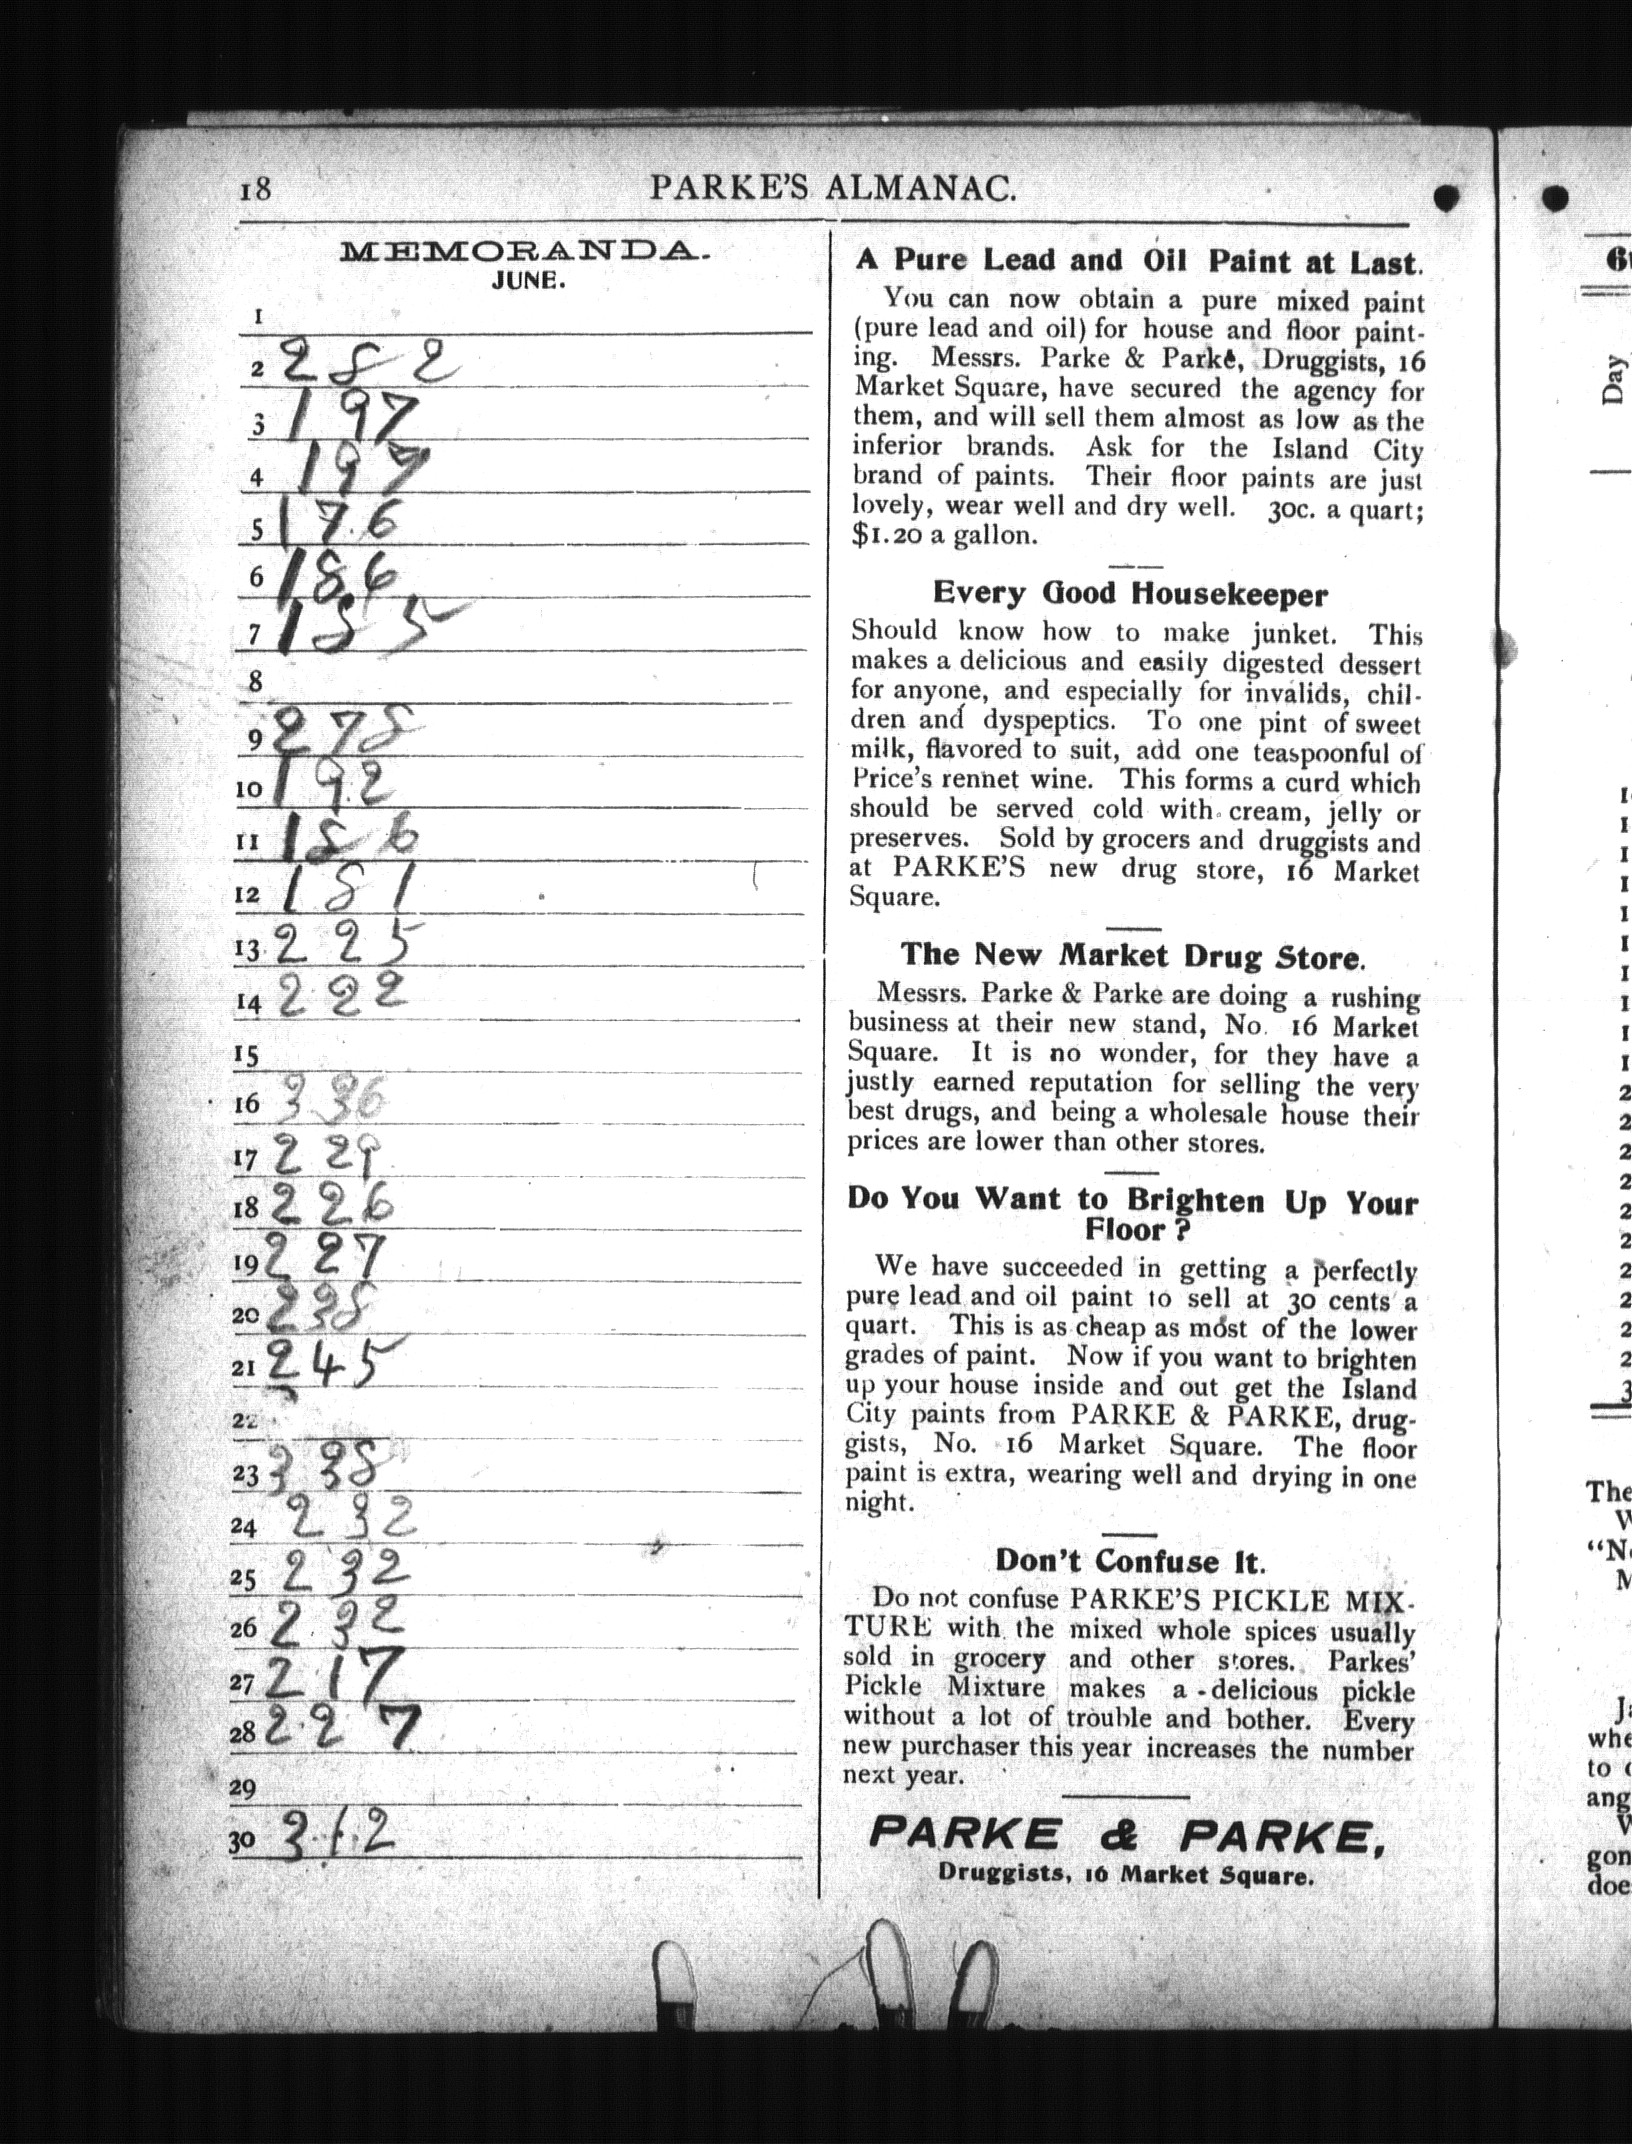 18
PARKE'S ALMANAC.
MEMORANDA.
JUNE.
1
2 282
3 197
4 197
5 176
6 186
7 185
8
9 278
10 192
11 186
12 181
13 225
14 222
15
16 336
17 229
18 226
19 227
20 238
21 245
22
23 338
24 232
25 232
26 232
27 217
28 227
29
30 312
A Pure Lead and Oil Paint at Last.
You can now obtain a pure mixed paint
(pure lead and oil) for house and floor paint-
ing. Messrs. Parke & Parke, Druggists, 16
Market Square, have secured the agency for
them, and will sell them almost as low as the
inferior brands. Ask for the Island City
brand of paints. Their floor paints are just
lovely, wear well and dry well. 30c. a quart;
$1.20 a gallon.
Every Good Housekeeper
Should know how to make junket. This
makes a delicious and easily digested dessert
for anyone, and especially for invalids, chil-
dren and dyspeptics. To one pint of sweet
milk, flavored to suit, add one teaspoonful of
Price's rennet wine. This forms a curd which
should be served cold with cream, jelly or
preserves. Sold by grocers and druggists and
at PARKE'S new drug store, 16 Market
Square.
The New Market Drug Store.
Messrs. Parke & Parke are doing a rushing
business at their new stand, No. 16 Market
Square. It is no wonder, for they have a
justly earned reputation for selling the very
best drugs, and being a wholesale house their
prices are lower than other stores.
Do You Want to Brighten Up Your
Floor?
We have succeeded in getting a perfectly
pure lead and oil paint to sell at 30 cents a
quart. This is as cheap as most of the lower
grades of paint. Now if you want to brighten
up your house inside and out get the Island
City paints from PARKE & PARKE, drug-
gists, No. 16 Market Square. The floor
paint is extra, wearing well and drying in one
night.
Don't Confuse It.
Do not confuse PARKE'S PICKLE MIX-
TURE with the mixed whole spices usually
sold in grocery and other stores. Parkes'
Pickle Mixture makes a delicious pickle
without a lot of trouble and bother. Every
new purchaser this year increases the number
next year.
PARKE & PARKE,
Druggists, 16 Market Square.
Day
The
"N
whe
to
ang
gon
doe